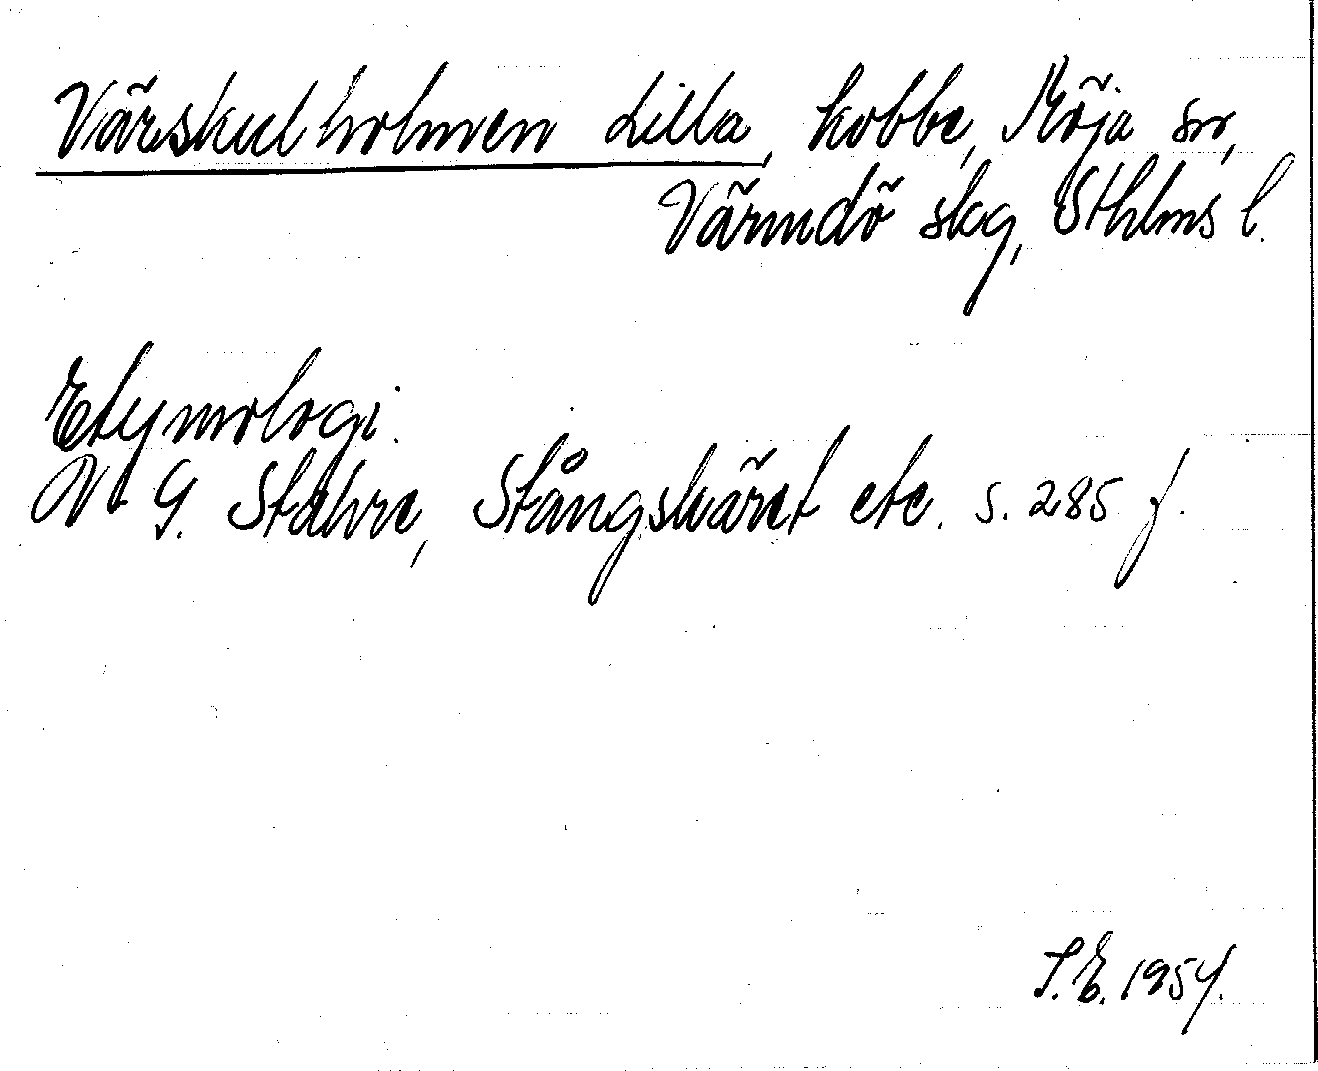 Värskulholmen Lilla, kobbe, Möja sn,
Värmdö skg, Sthlms l.
Etymologi.
N. G. Stahre, Stångskäret etc. s. 285 f.
S.E. 1954.